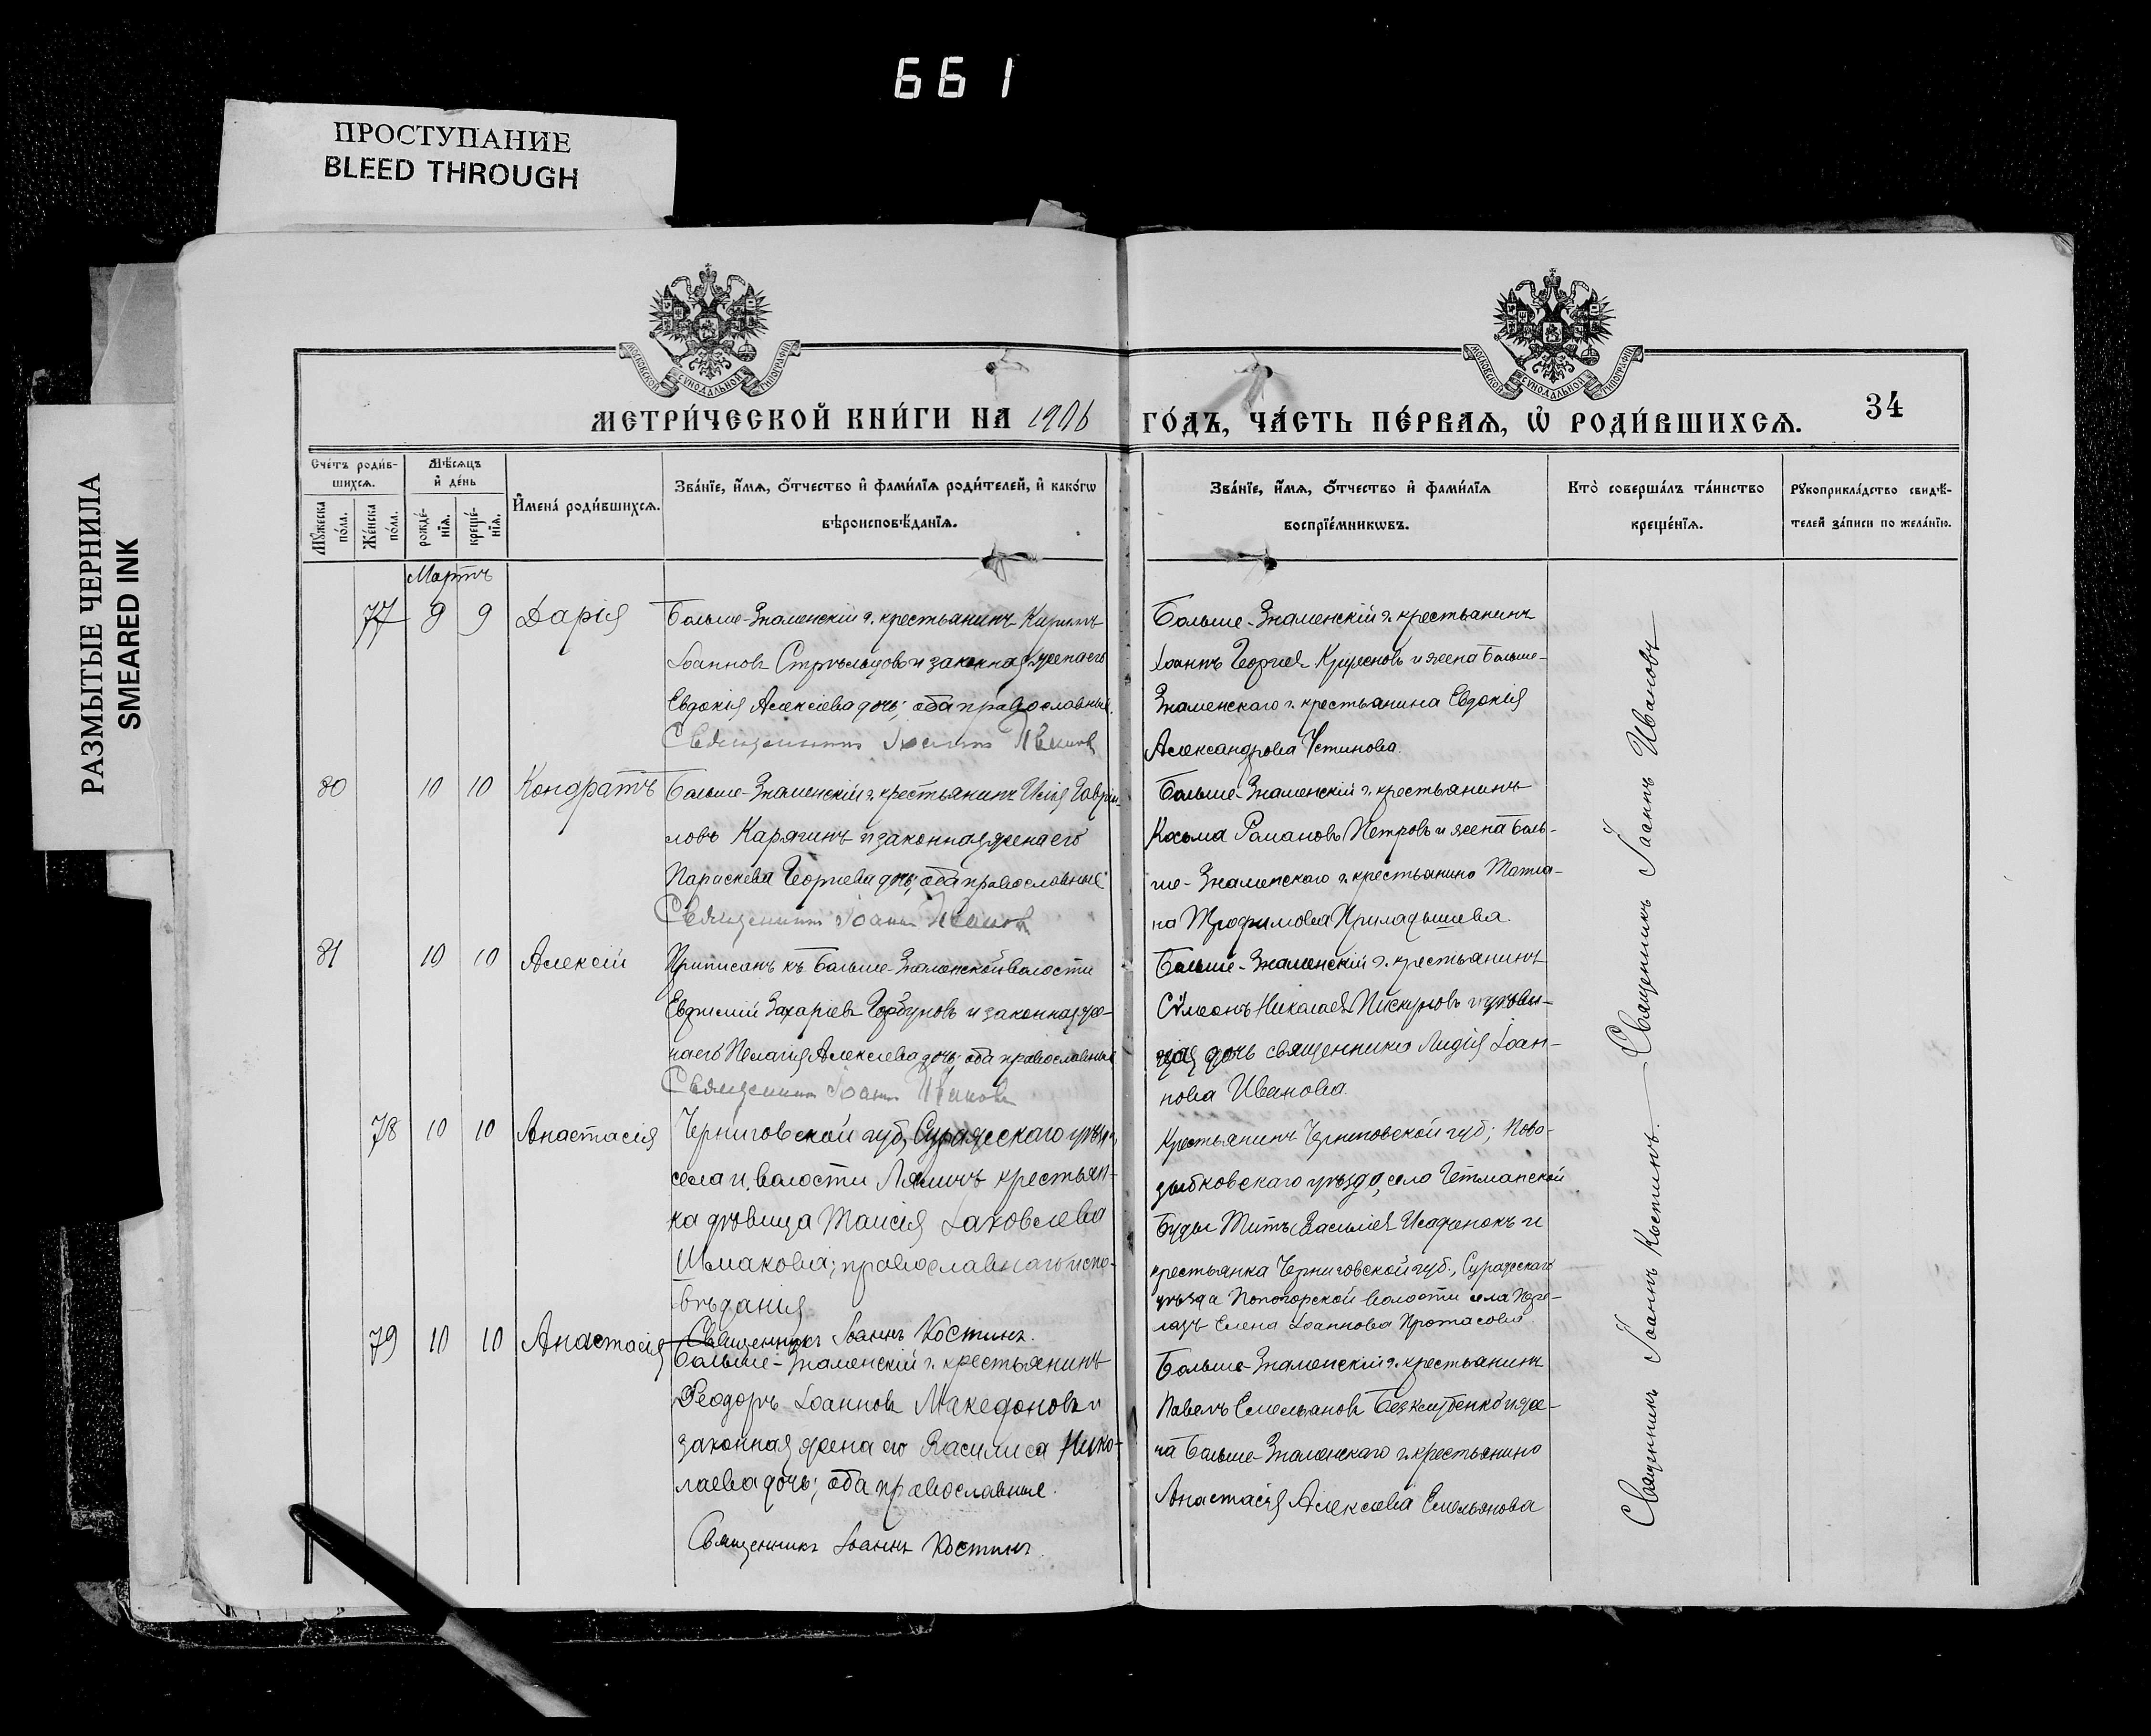 661
ПРОСТУПАНИЕ
BLEED THROUGH
РАЗМЫТЫЕ ЧЕРНИЛА
SMEARED INK
МОСКОВСКОЙ СѴНОДАЛЬНОЙ ТИПОГРАФІИ
МОСКОВСКОЙ СѴНОДАЛЬНОЙ ТИПОГРАФІИ
МЕТРИ́ЧЕСКОЙ КНИ́ГИ НА 1906 ГО́ДЪ, ЧА́СТЬ ПЕ́РВАѦ, Ѡ҆ РОДИ́ВШИХСѦ.
34
Сче́тъ роди́в-
шихсѧ.
Мꙋ́жеска по́ла.
Же́нска по́ла.
Мѣ́сѧцъ
и҆ де́нь
рожде́-
нїѧ.
креще́-
нїѧ.
И҆мена̀ роди́вшихсѧ.
Зва́нїе, и҆́мѧ, ѻ҆́тчество и҆ фами́лїѧ роди́телей, и҆ како́гѡ
вѣроисповѣ́данїѧ.
Зва́нїе, и҆́мѧ, ѻ҆́тчество и҆ фами́лїѧ
воспрїе́мникѡвъ.
Кто̀ соверша́лъ та́инство
креще́нїѧ.
Рꙋкоприкла́дство свидѣ́-
телей за́писи по жела́нїю.
Мартъ
77 9 9 Дарія
Больше-Знаменскій г. крестьянинъ Кириллъ
Іоанновъ Стрѣльцовъ и законная жена его
Евдокія Алексіева дочь; оба православные.
Священникъ Іоаннъ Ивановъ
Больше-Знаменскій г. крестьянинъ
Іоаннъ Георгіевъ и жена Больше-
Знаменскаго г. крестьянина Евдокія
Александрова Устинова.
80 10 10 Кондратъ
Больше-Знаменскій г. крестьянинъ Илія Гаврі-
ловъ Карягинъ и законная жена его
Параскева Георгіева дочь; оба православные
Священникъ Іоаннъ Ивановъ
Больше-Знаменскій г. крестьянинъ
Косьма Романовъ Петровъ и жена Боль-
ше-Знаменскаго г. крестьянина Татіа-
на Трофимова Приладышева.
81 10 10 Алексій
Приписанъ къ Больше-Знаменской волости
Евфимій Захаріевъ Горбуновъ и законная же-
на его Пелагія Алексіева дочь; оба православные
Священникъ Іоаннъ Ивановъ
Больше-Знаменскій г. крестьянинъ
Сѵмеонъ Николаевъ Пискуновъ и дѣви-
ца дочь священника Лидія Іоан-
нова Иванова.
78 10 10 Анастасія
Черниговской губ., Суражескаго уѣзда,
села и волости Ляличъ крестьян-
ка дѣвица Таисія Іаковлева
Шмакова; православнаго испо-
вѣданія
Священникъ Іоаннъ Костинъ.
Крестьянинъ Черниговской губ., Ново-
зыбковскаго уѣзда, села Гетманской
Буды Титъ Васильевъ Исаченокъ и
крестьянка Черниговской губ., Суражскаго
уѣзда Попогорской волости села
Елена Іоаннова Протасова
79 10 10 Анастасія
Больше-Знаменскій г. крестьянинъ
Ѳеодоръ Іоанновъ Македоновъ и
законная жена его Василиса Нико-
лаева дочь; оба православные.
Священникъ Іоаннъ Костинъ.
Больше-Знаменскій г. крестьянинъ
Павелъ Емельяновъ и же-
на Больше-Знаменскаго г. крестьянина
Анастасія Алексіева Емельянова
Священникъ Іоаннъ Костинъ. — Священникъ Іоаннъ Ивановъ